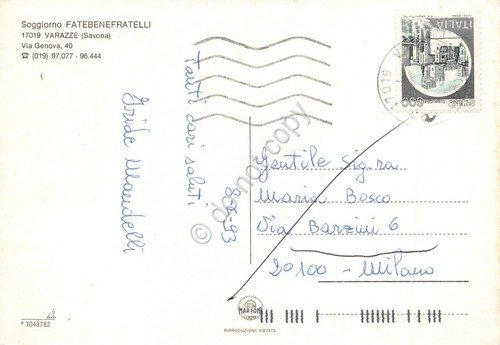 Soggiorno FATEBENEFRATELLI
17019 VARAZZE (Savona)
Via Genova, 40
☎ (019) 97.077 - 96.444
Tanti cari saluti
Iride Mandelli
8-6-93
Gentile Sig.ra
Maria Bosco
Via Barzini 6
20100 - Milano
ITALIA
17019
MARCONI
GENOVA
RIPRODUZIONE VIETATA
* 1043782
© domoscopy